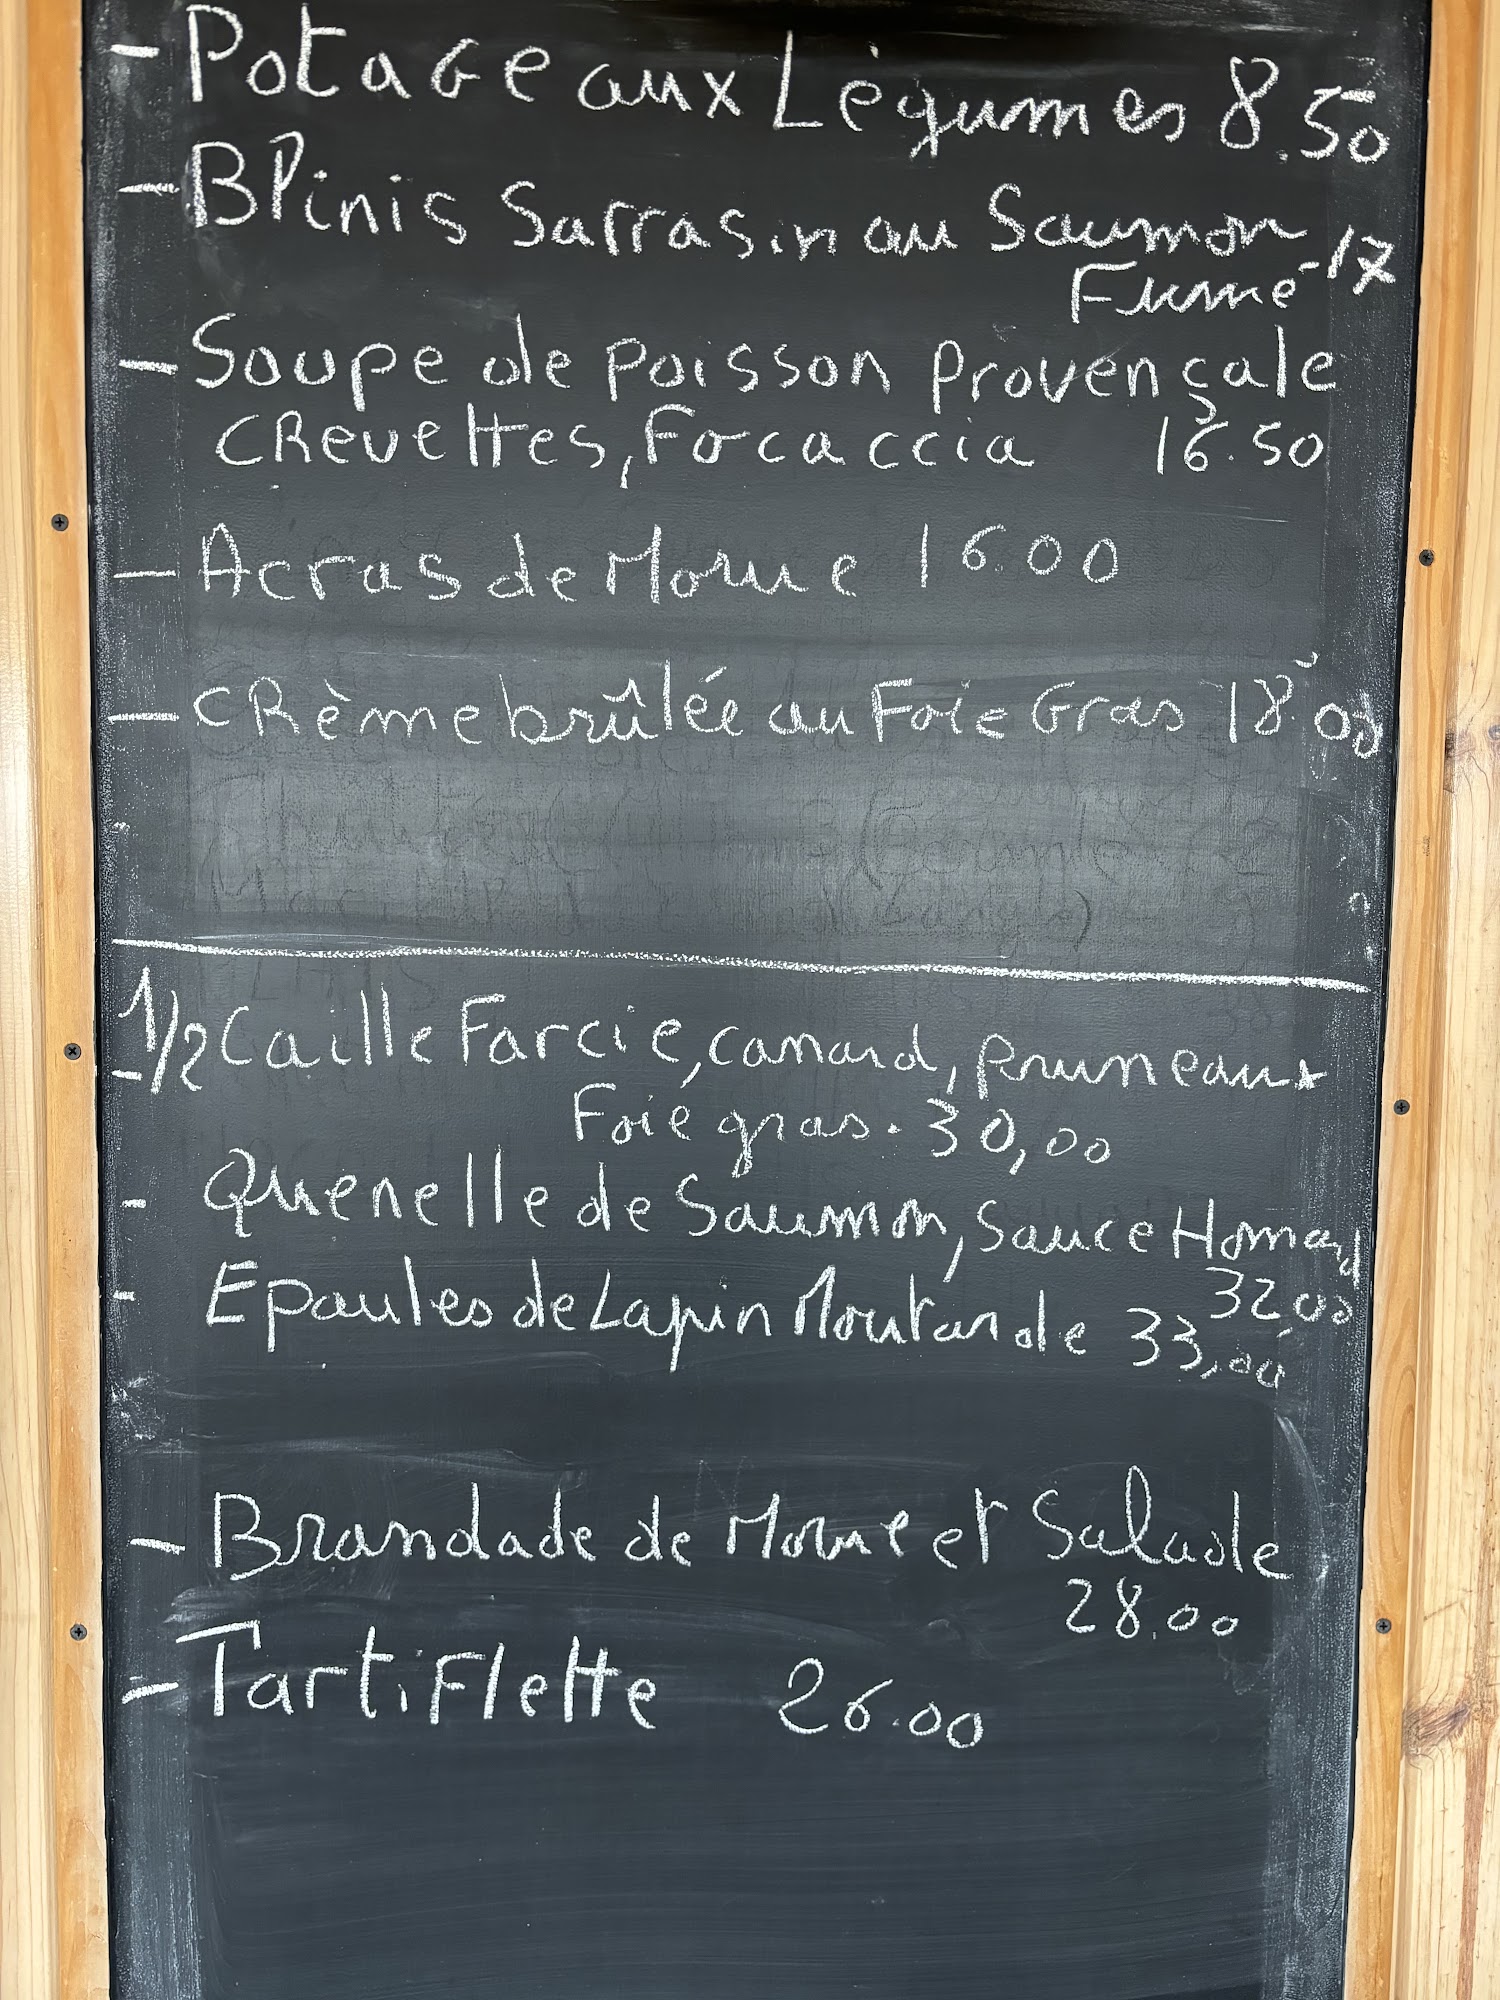 - Potage aux Légumes 8.50
- Blinis Sarrasin au Saumon
Fumé -17
- Soupe de poisson provençale
Crevettes, Focaccia 16.50
- Acras de Morue 16.00
- Crème brûlée au Foie Gras 18.00
- 1/2 Caille Farcie, canard, pruneaux
Foie gras. 30,00
- Quenelle de Saumon, Sauce Homard
32.00
- Epaules de Lapin Moutarde 33,00
- Brandade de Morue et Salade
28.00
- Tartiflette 26.00